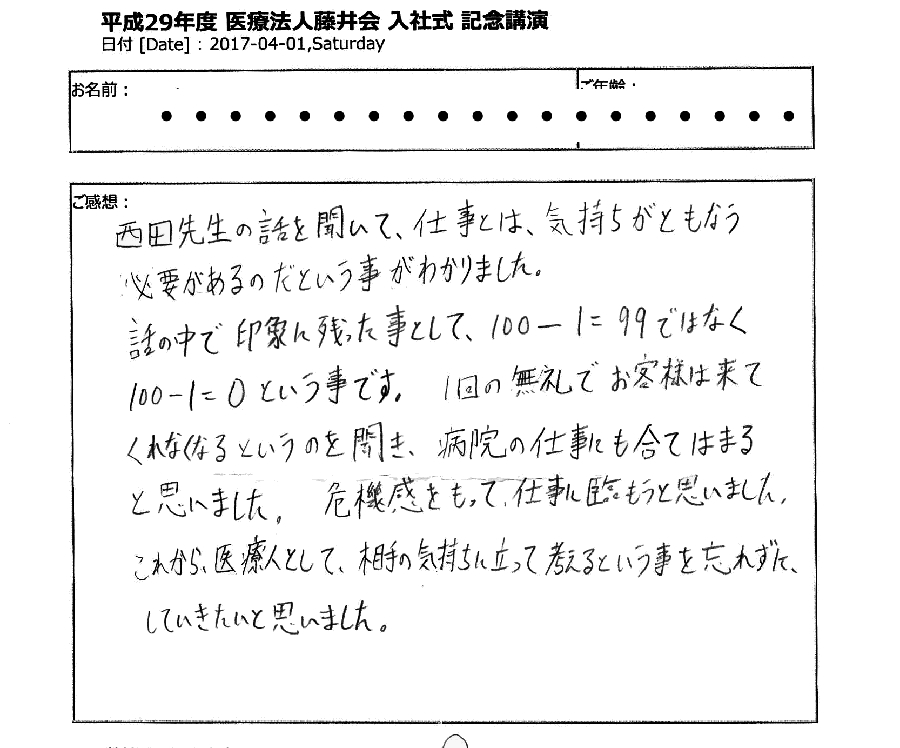 平成29年度 医療法人藤井会 入社式 記念講演
日付 [Date] : 2017-04-01,Saturday
お名前： ご年齢：
ご感想：
西田先生の話を聞いて、仕事とは、気持ちがともなう
必要があるのだという事がわかりました。
話の中で印象に残った事として、100－1＝99ではなく
100－1＝0という事です。 1回の無礼でお客様は来て
くれなくなるというのを聞き、病院の仕事にも合てはまる
と思いました。 危機感をもって、仕事に臨もうと思いました。
これから、医療人として、相手の気持ちに立って考えるという事を忘れずに、
していきたいと思いました。